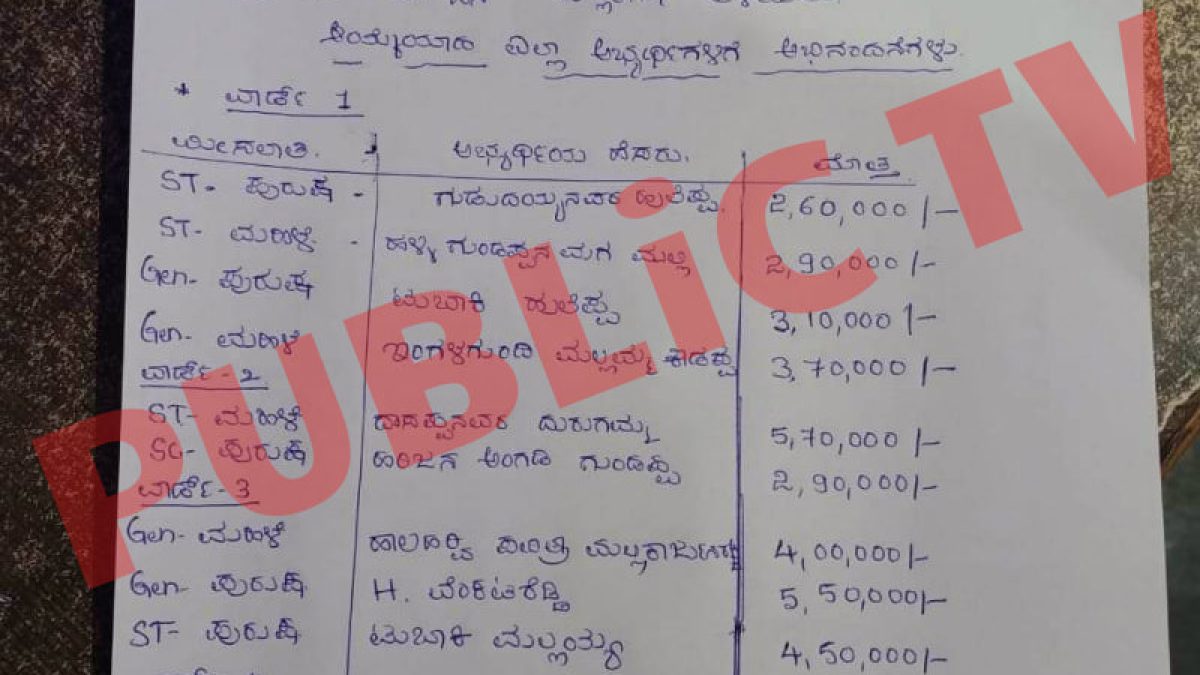 ಆಯ್ಕೆಯಾದ ಎಲ್ಲಾ ಅಭ್ಯರ್ಥಿಗಳಿಗೆ ಅಭಿನಂದನೆಗಳು.
* ವಾರ್ಡ್ 1
ಮೀಸಲಾತಿ. ಅಭ್ಯರ್ಥಿಯ ಹೆಸರು. ಮೊತ್ತ
ST- ಪುರುಷ - ಹುಲೆಪ್ಪ. 2,60,000/-
ST- ಮಹಿಳೆ - ಹಳ್ಳಿ ಗುಂಡಪ್ಪನ ಮಗ ಮಲ್ಲಿ 2,90,000/-
Gen- ಪುರುಷ ಟುಬಾಕಿ ಹುಲೆಪ್ಪ 3,10,000/-
Gen- ಮಹಿಳೆ ಮಲ್ಲಮ್ಮ 3,70,000/-
ವಾರ್ಡ್-2
ST- ಮಹಿಳೆ ದಾಸಪ್ಪನವರ ದುರುಗಮ್ಮ 5,70,000/-
SC- ಪುರುಷ ಹರಿಜನ ಅಂಗಡಿ ಗುಂಡಪ್ಪ 2,90,000/-
ವಾರ್ಡ್-3
Gen- ಮಹಿಳೆ 4,00,000/-
Gen- ಪುರುಷ H. ವೆಂಕಟರೆಡ್ಡಿ 5,50,000/-
ST- ಪುರುಷ ಟುಬಾಕಿ ಮಲ್ಲಯ್ಯ 4,50,000/-
PUBLiC TV